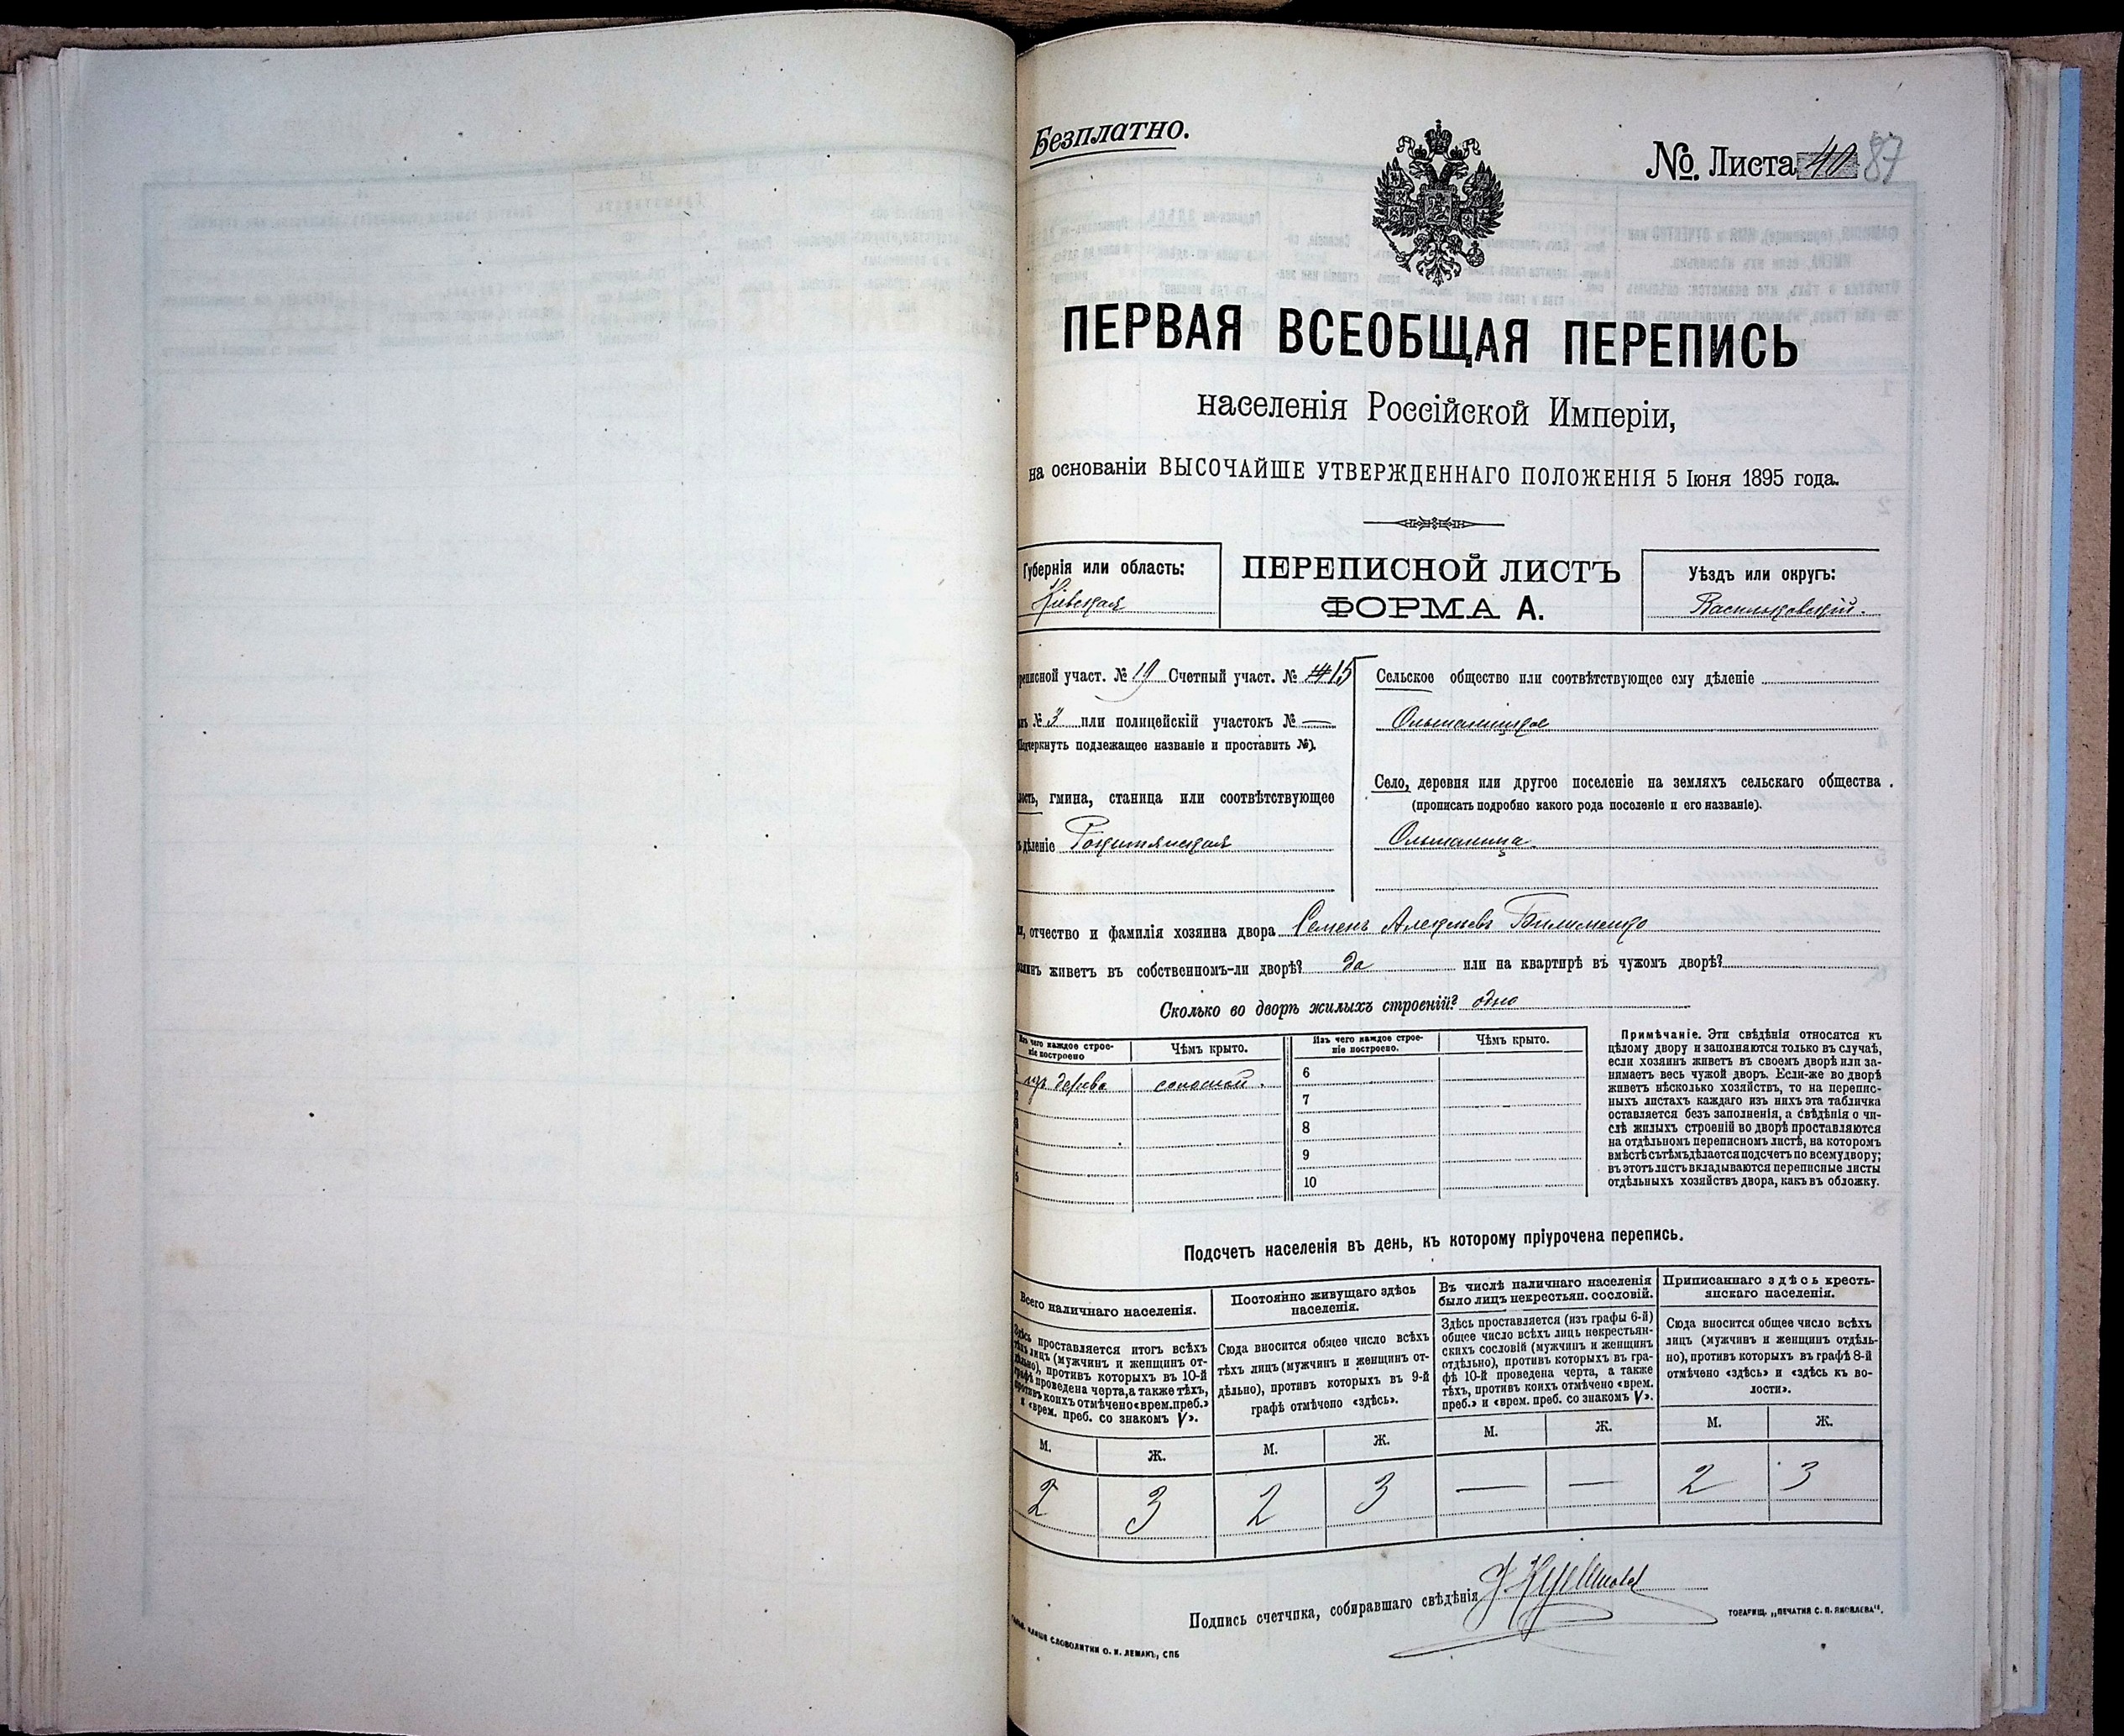 Безплатно.
№ Листа 40 87
ПЕРВАЯ ВСЕОБЩАЯ ПЕРЕПИСЬ
населенія Россійской Имперіи,
на основаніи ВЫСОЧАЙШЕ УТВЕРЖДЕННАГО ПОЛОЖЕНІЯ 5 Іюня 1895 года.
Губернія или область:
Кіевская
ПЕРЕПИСНОЙ ЛИСТЪ
ФОРМА А.
Уѣздъ или округъ:
Васильковскій.
реписной участ. № 19 Счетный участ. № 15
нъ № 3 или полицейскій участокъ № —
(Подчеркнуть подлежащее названіе и проставить №).
лость, гмина, станица или соотвѣтствующее
ъ дѣленіе Рокитянская
Сельское общество или соотвѣтствующее ему дѣленіе
Ольшаницкое
Село, деревня или другое поселеніе на земляхъ сельскаго общества.
(прописать подробно какого рода поселеніе и его названіе).
Ольшаница.
я, отчество и фамилія хозяина двора Семенъ Алексѣевъ
озяинъ живетъ въ собственномъ-ли дворѣ? да или на квартирѣ въ чужомъ дворѣ?
Сколько во дворѣ жилыхъ строеній? одно
Изъ чего каждое строе-
ніе построено
Чѣмъ крыто.
Изъ чего каждое строе-
ніе построено.
Чѣмъ крыто.
1 изъ дерева соломой. 6
2 7
3 8
4 9
5 10
Примѣчаніе. Эти свѣдѣнія относятся къ
цѣлому двору и заполняются только въ случаѣ,
если хозяинъ живетъ въ своемъ дворѣ или за-
нимаетъ весь чужой дворъ. Если-же во дворѣ
живетъ нѣсколько хозяйствъ, то на перепис-
ныхъ листахъ каждаго изъ нихъ эта табличка
оставляется безъ заполненія, а свѣдѣнія о чи-
слѣ жилыхъ строеній во дворѣ проставляются
на отдѣльномъ переписномъ листѣ, на которомъ
вмѣстѣ съ тѣмъ дѣлается подсчетъ по всему двору;
въ этотъ листъ вкладываются переписные листы
отдѣльныхъ хозяйствъ двора, какъ въ обложку.
Подсчетъ населенія въ день, къ которому пріурочена перепись.
Всего наличнаго населенія.
Здѣсь проставляется итогъ всѣхъ
тѣхъ лицъ (мужчинъ и женщинъ от-
дѣльно), противъ которыхъ въ 10-й
графѣ проведена черта, а также тѣхъ,
противъ коихъ отмѣчено «врем. преб.»
и «врем. преб. со знакомъ V».
Постоянно живущаго здѣсь
населенія.
Сюда вносится общее число всѣхъ
тѣхъ лицъ (мужчинъ и женщинъ от-
дѣльно), противъ которыхъ въ 9-й
графѣ отмѣчено «здѣсь».
Въ числѣ наличнаго населенія
было лицъ некрестьян. сословій.
Здѣсь проставляется (изъ графы 6-й)
общее число всѣхъ лицъ некрестьян-
скихъ сословій (мужчинъ и женщинъ
отдѣльно), противъ которыхъ въ гра-
фѣ 10-й проведена черта, а также
тѣхъ, противъ коихъ отмѣчено «врем.
преб.» и «врем. преб. со знакомъ V».
Приписаннаго здѣсь кресть-
янскаго населенія.
Сюда вносится общее число всѣхъ
лицъ (мужчинъ и женщинъ отдѣль-
но), противъ которыхъ въ графѣ 8-й
отмѣчено «здѣсь» и «здѣсь къ во-
лости».
М. Ж. М. Ж. М. Ж. М. Ж.
2 3 2 3 — — 2 3
Подпись счетчика, собиравшаго свѣдѣнія
СЛОВОЛИТНИ О. И. ЛЕМАНЪ, СПБ
ТОВАРИЩ. „ПЕЧАТНЯ С. П. ЯКОВЛЕВА".